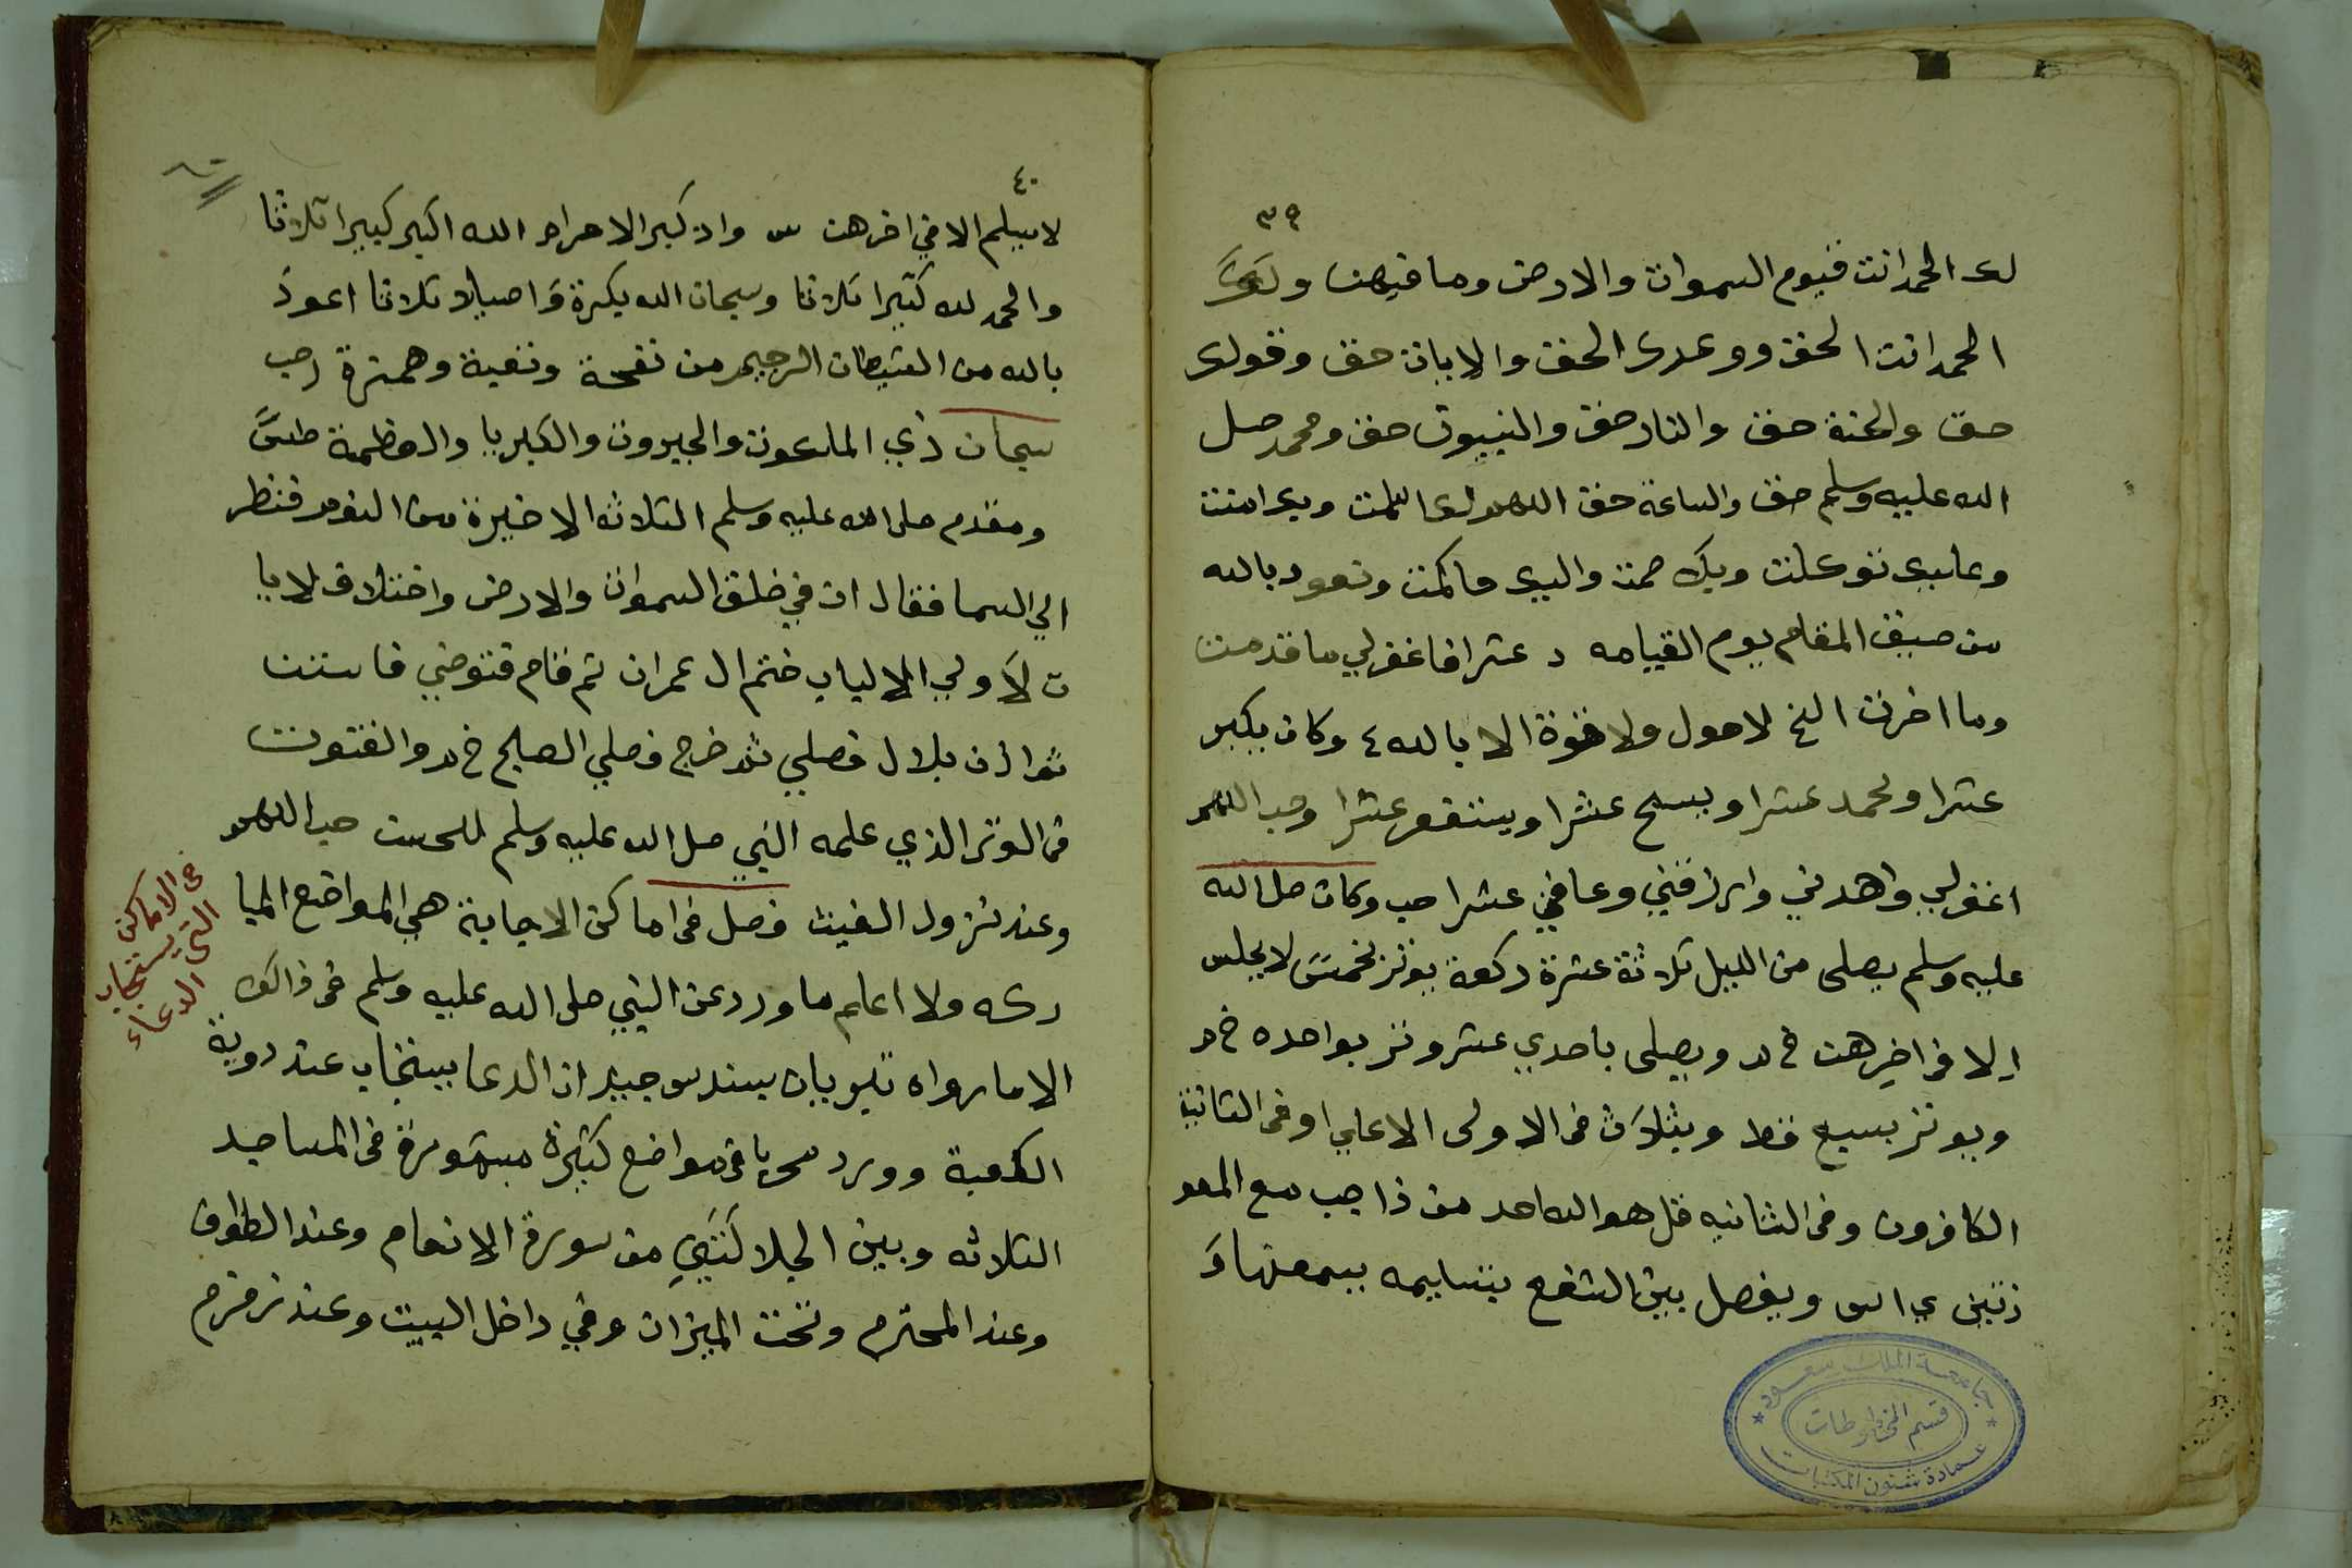 ٣٩
لك الحمد انت قيوم السموات والارض وما فيهن ولك
الحمد انت الحق ووعدك الحق والايات حق وقولك
حق والجنة حق والنار حق والنبيون حق ومحمد صل
الله عليه وسلم حق والساعة حق اللهم لك اسلمت وبك امنت
وعليك توكلت وبك خاصمت واليك حاكمت ونعود بالله
من ضيق المقام يوم القيامه د عشرا فاغفرلي ما قدمت
وما اخرت الخ لاحول ولا قوة الا بالله ٤ وكان يكبر
عشرا ويحمد عشرا ويسبح عشرا ويستغفر عشرا وحب اللهم
اغفرلي واهدني وارزقني وعافني عشرا حب وكان صل الله
عليه وسلم يصلى من الليل ثلاثة عشرة ركعة يوتر بخمس لا يجلس
الا في اخرهن خ م د ويصلى باحدي عشر وتر بواحده خ م
ويوتر بسبع فقط وبثلاث في الاولى الاعلي وفي الثانية
الكافرون وفي الثانيه قل هو الله احد من ذا حب مع المعو
ذتين ي اس ويفصل بين الشفع بتسليمه يسمعها و
جامعة الملك سعود
قسم المخطوطات
عمادة شئون المكتبات
٤٠
لا يسلم الا في اخرهن س واذ كبر الاحرام الله اكبر كبيرا ثلاثا
والحمد لله كثيرا ثلاثا وسبحان الله بكرة واصيلا ثلاثا اعوذ
بالله من الشيطان الرجيم من نفخة ونفثة وهمزة حب
سبحان ذي الملكوت والجبروت والكبريا والعظمة طس
ومقدم صلى الله عليه وسلم الثلاثه الاخيرة من النوم فنظر
الي السما فقال ان في خلق السموات والارض واختلاف لايا
ت لاولي الالباب ختم ال عمران ثم قام فتوضي فاستن
ثم اذن بلال فصلي ثم خرج فصلي الصبح خ م د والقنوت
في الوتر الذي علمه النبي صل الله عليه وسلم للحسن حب اللهم
وعند نزول الغيث فصل في اماكن الاجابة هي المواضع المبا
ركه ولا اعلم ما ورد عن النبي صلى الله عليه وسلم في ذالك
الا ما رواه بسند جيد ان الدعا يستجاب عند روية
الكعبة وورد مجربا في مواضع كثيرة مشهورة في المساجد
الثلاثه وبين الجلالتين من سورة الانعام وعند الطواف
وعند الملتزم وتحت الميزان وفي داخل البيت وعند زمزم
في الاماكن
التي يستجاب
الدعاء